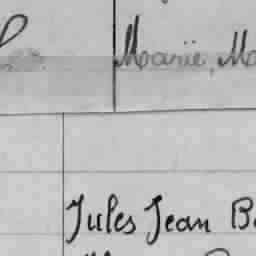 Marie, Ma
Jules Jean B